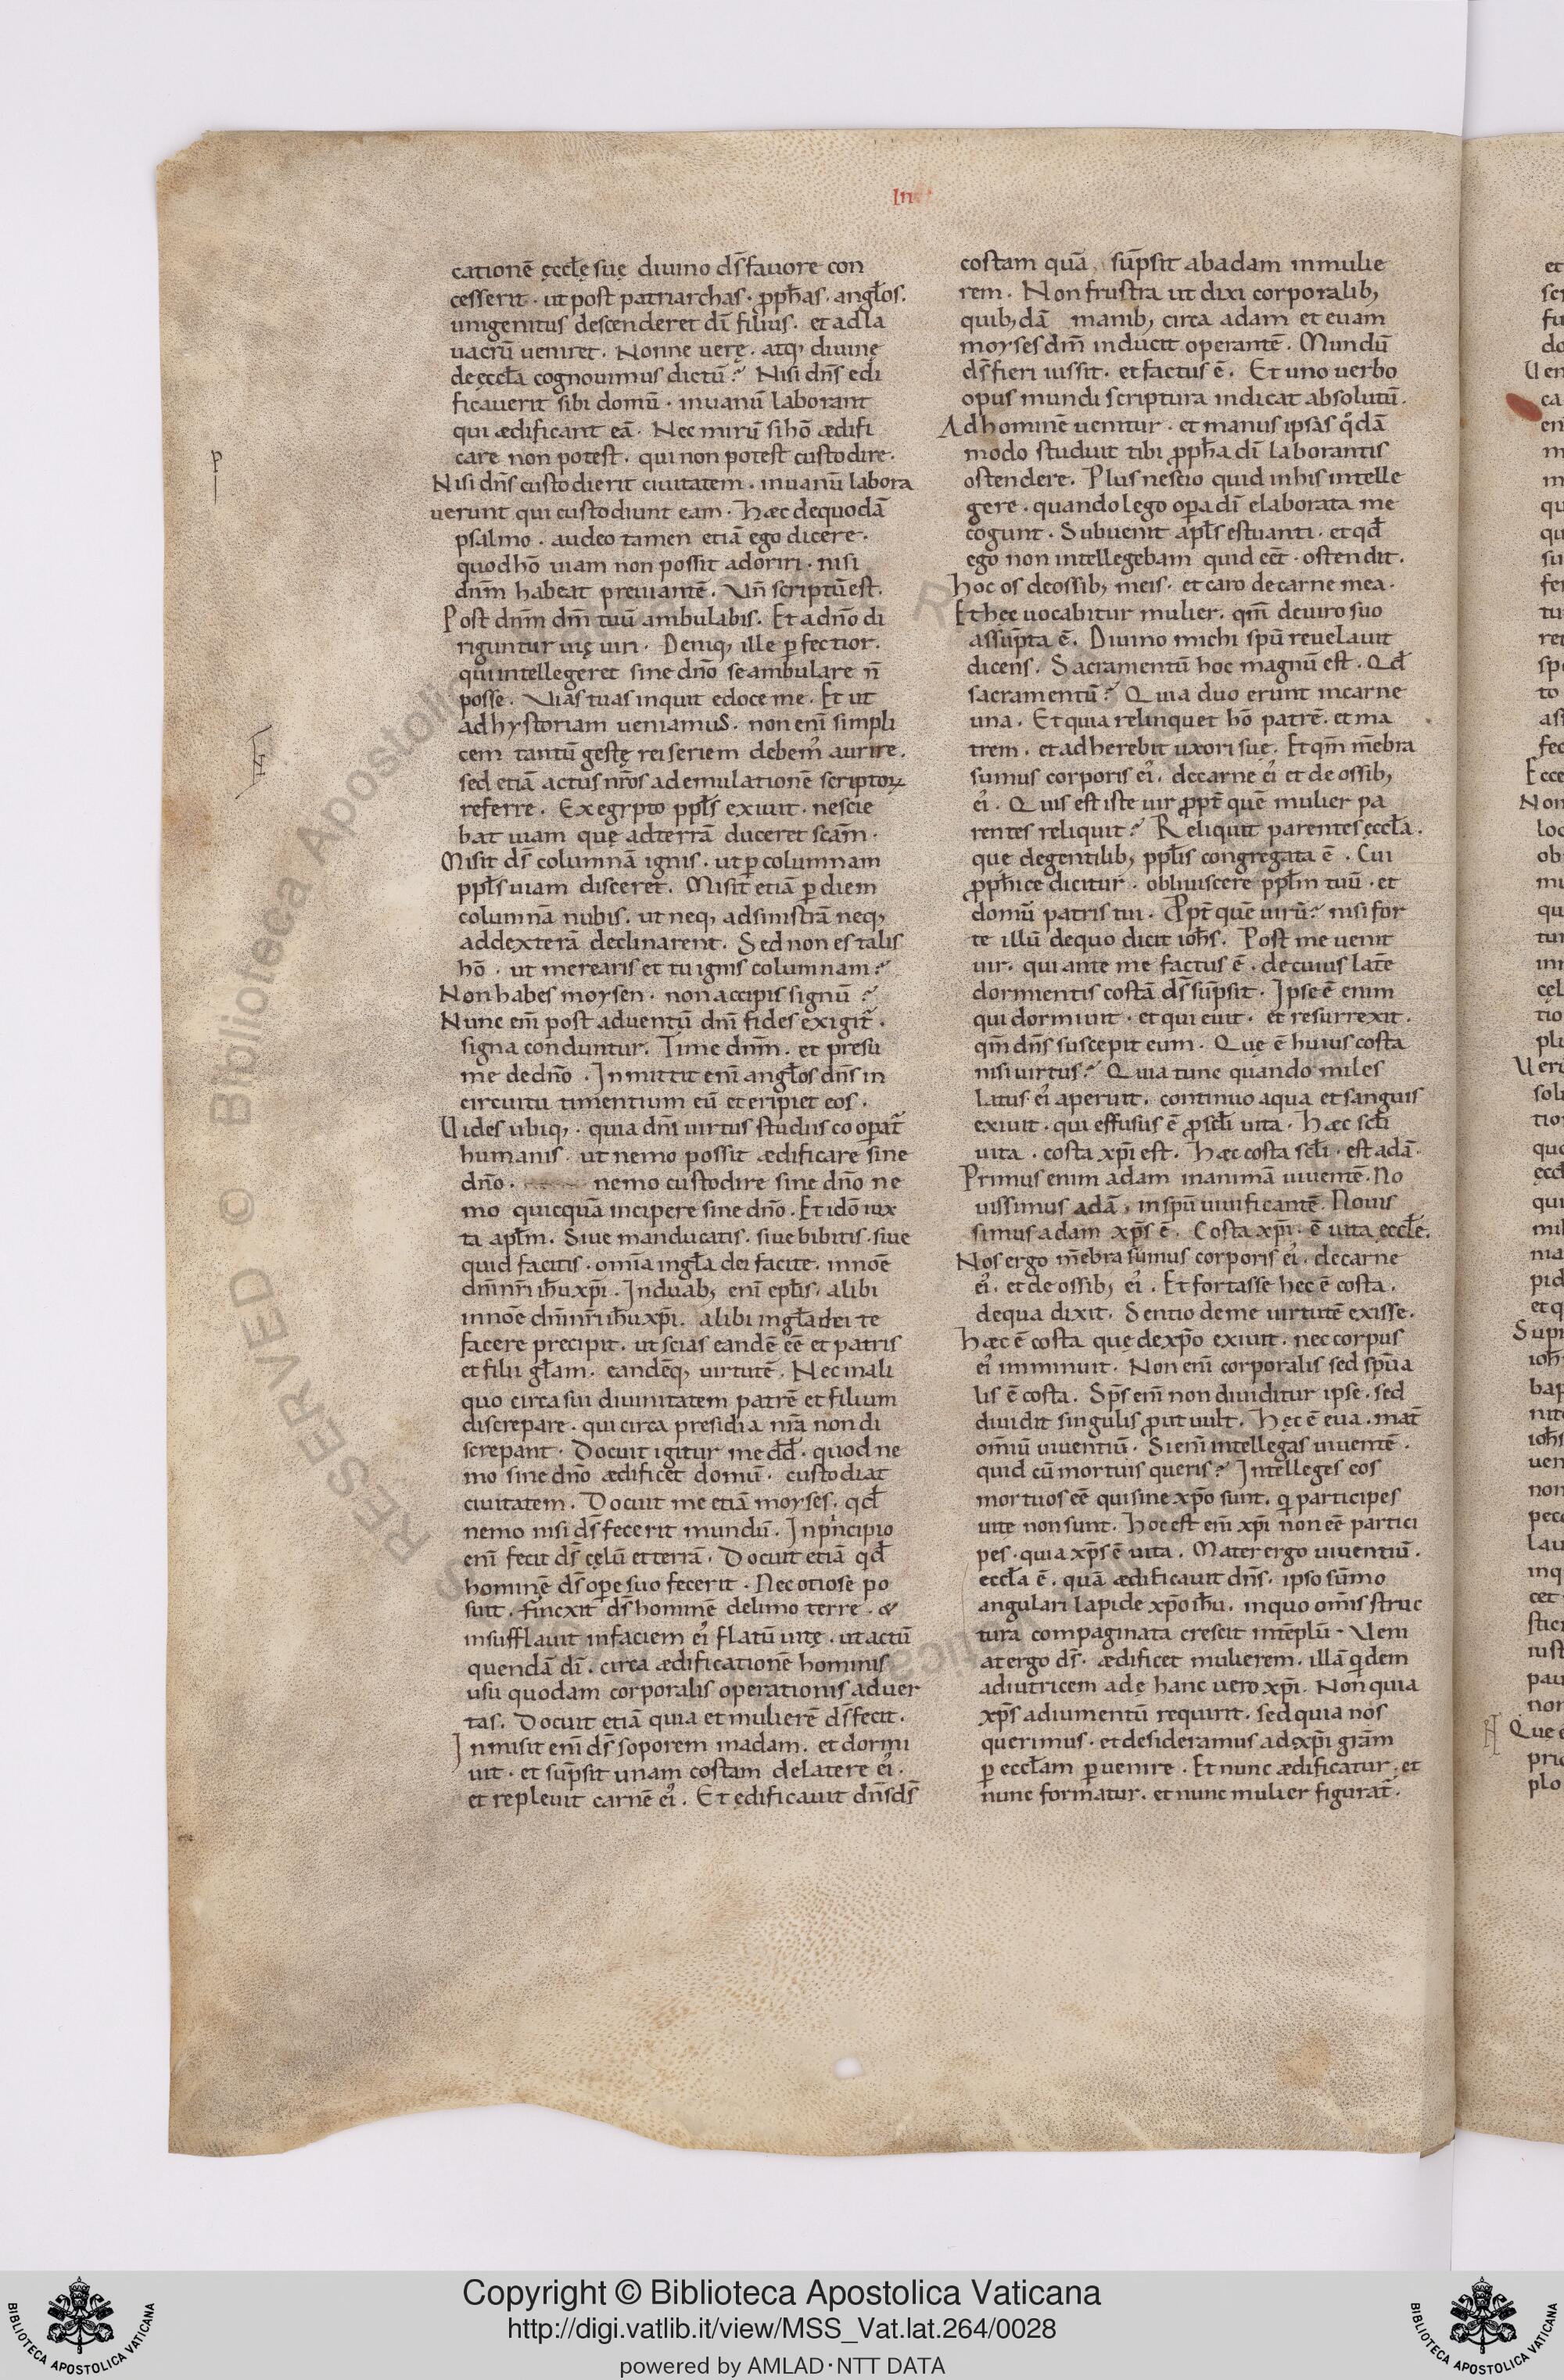 In
cationē ęccłę suę diuino ds̄ fauore con
cesserit · ut post patriarchas · ꝓpħas · angłos ·
unigenitus descenderet dī filius · et ad la
uacrū ueniret · Nonne uerę · atq; diuinę
de ęccła cognouimus dictū? Nisi dn̄s edi
ficauerit sibi domū · in uanū laborant
qui ædificant eā · Nec mirū si hō ædifi
care non potest · qui non potest custodire ·
Nisi dn̄s custodierit ciuitatem · in uanū labora
uerunt qui custodiunt eam · Hæc de quodā
psalmo · audeo tamen etiā ego dicere ·
quod hō uiam non possit adoriri · nisi
dnm̄ habeat preuiantē · Vn̄ scriptū est ·
Post dnm̄ dm̄ tuū ambulabis · Et a dn̄o di
riguntur uię uiri · Deniq; ille ꝑfectior ·
qui intellegeret sine dn̄o se ambulare n̄
posse · Vias tuas inquit edoce me · Et ut
ad hystoriam ueniamus · non enī simpli
cem tantū gestę rei seriem debem᾽ aurire ·
sed etiā actus nr̄os ad emulationē scriptoꝝ
referre · Ex egypto ppłs exiuit · nescie
bat uiam quę ad terrā duceret scām ·
Misit ds̄ columnā ignis · ut ꝑ columnam
ppłs uiam disceret · Misit etiā ꝑ diem
columnā nubis · ut neq; ad sinistrā neq;
ad dexterā declinarent · Sed non es talis
hō · ut merearis et tu ignis columnam?
Non habes moysen · non accipis signū?
Nunc em̄ post aduentū dnī fides exigit᾽ ·
signa conduntur · Time dnm̄ · et presu
me de dn̄o · Inmittit enī angłos dn̄s in
circuitu timentium eū et eripiet eos ·
Uides ubiq; · quia dnī uirtus studiis cooꝑat᾽
humanis · ut nemo possit ædificare sine
dn̄o · nemo custodire sine dn̄o ne
mo quicquā incipere sine dn̄o · Et idō iux
ta apłm · Siue manducatis · siue bibitis · siue
quid facitis · omīa in gła dei facite · in noē
dnī nr̄i iħu xp̄i · In duab; enī epłis · alibi
in noē dnī nr̄i iħu xp̄i · alibi in gła dei te
facere precipit · ut scias eandē eē et patris
et filii głam · eandēq; uirtutē · Nec in ali
quo circa sui diuinitatem patrē et filium
discrepare · qui circa presidia nr̄a non di
screpant · Docuit igitur me dd̄ · quod ne
mo sine dn̄o ædificet domū · custodiat
ciuitatem · Docuit me etiā moyses · qd̄
nemo nisi ds̄ fecerit mundū · In pͥncipio
enī fecit ds̄ cęlū et terrā · Docuit etiā qd̄
hominē ds̄ oꝑe suo fecerit · Nec otiose po
suit · Finexit ds̄ hominē de limo terre · &
insufflauit in faciem ei᾽ flatū uitę · ut actū
quendā dī · circa ædificationē hominis
usu quodam corporalis operationis aduer
tas · Docuit etiā quia et mulierē ds̄ fecit ·
Inmisit enī ds̄ soporem in adam · et dormi
uit · et sūpsit unam costam de latere ei᾽ ·
et repleuit carnē ei᾽ · Et ędificauit dn̄s ds̄
costam quā sūpsit ab adam in mulie
rem · Non frustra ut dixi corporalib;
quib;dā manib; circa adam et euam
moyses dm̄ inducit operantē · Mundū
ds̄ fieri iussit · et factus ē · Et uno uerbo
opus mundi scriptura indicat absolutū ·
Ad hominē uenitur · et manus ipsas q᾽dā
modo studuit tibi ꝓpħa dī laborantis
ostendere · Plus nescio quid in his intelle
gere · quando lego oꝑa dī elaborata me
cogunt · Subuenit apłs estuanti · et qd̄
ego non intellegebam quid eēt · ostendit ·
Hoc os de ossib; meis · et caro de carne mea ·
Et hęc uocabitur mulier · qm̄ de uiro suo
assūpta ē · Diuino michi spū reuelauit
dicens · Sacramentū hoc magnū est · Qd̄
sacramentū? Quia duo erunt in carne
una · Et quia relinquet hō patrē · et ma
trem · et adherebit uxori suę · Et qm̄ mēbra
sumus corporis ei᾽ · de carne ei᾽ et de ossib;
ei᾽ · Quis est iste uir ꝓpt᾽ quē mulier pa
rentes reliquit? Reliquit parentes ęccła ·
que de gentilib; ppłis congregata ē · Cui
ꝓpħice dicitur · obliuiscere ppłm tuū · et
domū patris tui · Ꝓpt᾽ quē uirū? nisi for
te illū de quo dicit ioħs · Post me uenit
uir · qui ante me factus ē · de cuius latē
dormientis costā ds̄ sūpsit · Ipse ē enim
qui dormiuit · et quieuit · et resurrexit ·
qm̄ dn̄s suscepit eum · Quę ē huius costa
nisi uirtus? Quia tunc quando miles
latus ei᾽ aperuit · continuo aqua et sanguis
exiuit · qui effusus ē ꝓ scłi uita · Hæc scłi
uita · costa xp̄i est · Hæc costa scłi · est adā ·
Primus enim adam in animā uiuentē · No
uissimus adā · in spū uiuificantē · Nouis
simus adam xp̄s ē · Costa xp̄i · ē uita ęccłe ·
Nos ergo mēbra sumus corporis ei᾽ · de carne
ei᾽ · et de ossib; ei᾽ · Et fortasse hec ē costa ·
de qua dixit · Sentio de me uirtutē exisse ·
Hæc ē costa quę de xp̄o exiuit · nec corpus
ei᾽ imminuit · Non enī corporalis sed spūa
lis ē costa · Sps̄ em̄ non diuiditur ipse · sed
diuidit singulis ꝓut uult · Hęc ē eua · mat᾽
om̄iū uiuentiū · Si enī intellegas uiuentē ·
quid cū mortuis queris? Intelleges eos
mortuos eē qui sine xp̄o sunt · qͥ participes
uite non sunt · Hoc est em̄ xp̄i non eē partici
pes · quia xp̄s ē uita · Mater ergo uiuentiū ·
eccła ē · quā ædificauit dn̄s · ipso sūmo
angulari lapide xp̄o iħu · in quo om̄is struc
tura compaginata crescit in tēplū · Veni
at ergo ds̄ · ædificet mulierem · illā qͥdem
adiutricem adę hanc uero xp̄i · Non quia
xp̄s adiumentū requirit · sed quia nos
querimus · et desideramus ad xp̄i grām
ꝑ eccłam ꝑuenire · Et nunc ædificatur · et
nunc formatur · et nunc mulier figurat᾽ ·
Copyright © Biblioteca Apostolica Vaticana
http://digi.vatlib.it/view/MSS_Vat.lat.264/0028
powered by AMLAD·NTT DATA